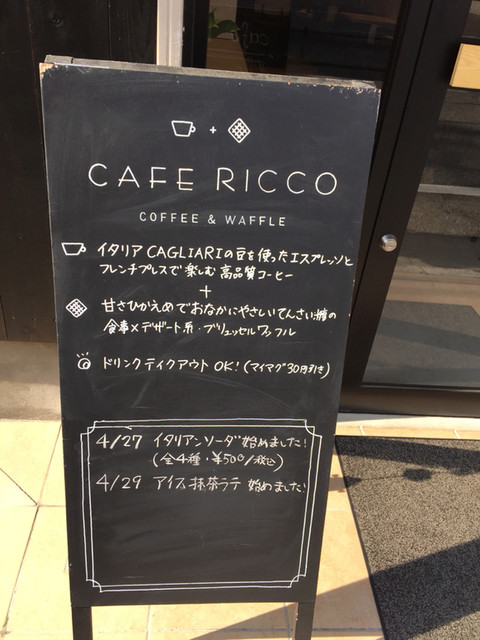 +
CAFE RICCO
COFFEE & WAFFLE
イタリア CAGLIARIの豆を使ったエスプレッソと
フレンチプレスで楽しむ高品質コーヒー
+
甘さひかえめでおなかにやさしいてんさい糖の
食事×デザート系・ブリュッセルワッフル
ドリンクテイクアウト OK! (マイマグ30円引き)
4/27 イタリアンソーダ始めました!
(全4種・¥500/税込)
4/29 アイス抹茶ラテ 始めました!